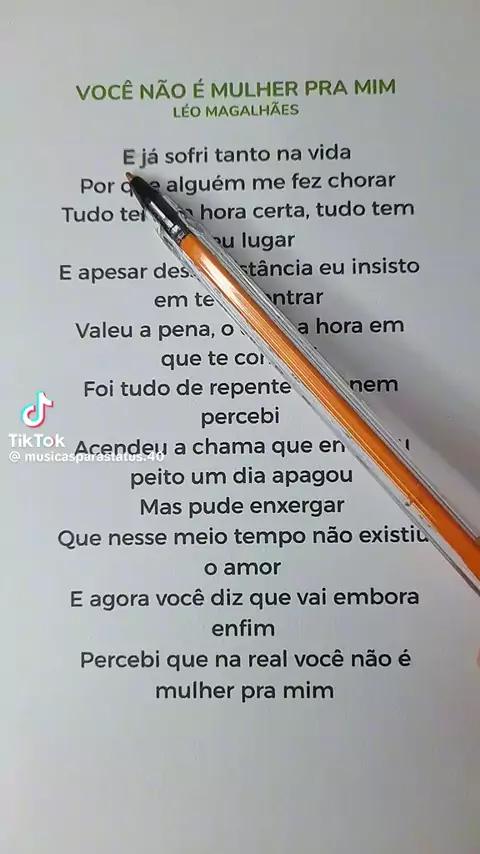 VOCÊ NÃO É MULHER PRA MIM
LÉO MAGALHÃES
E já sofri tanto na vida
Por que alguém me fez chorar
Tudo tem hora certa, tudo tem
lugar
E apesar eu insisto
em
Valeu a pena, o a hora em
que te
Foi tudo de repente nem
percebi
Acendeu a chama que
peito um dia apagou
Mas pude enxergar
Que nesse meio tempo não existiu
o amor
E agora você diz que vai embora
enfim
Percebi que na real você não é
mulher pra mim
TikTok
@musicasparastatus.40